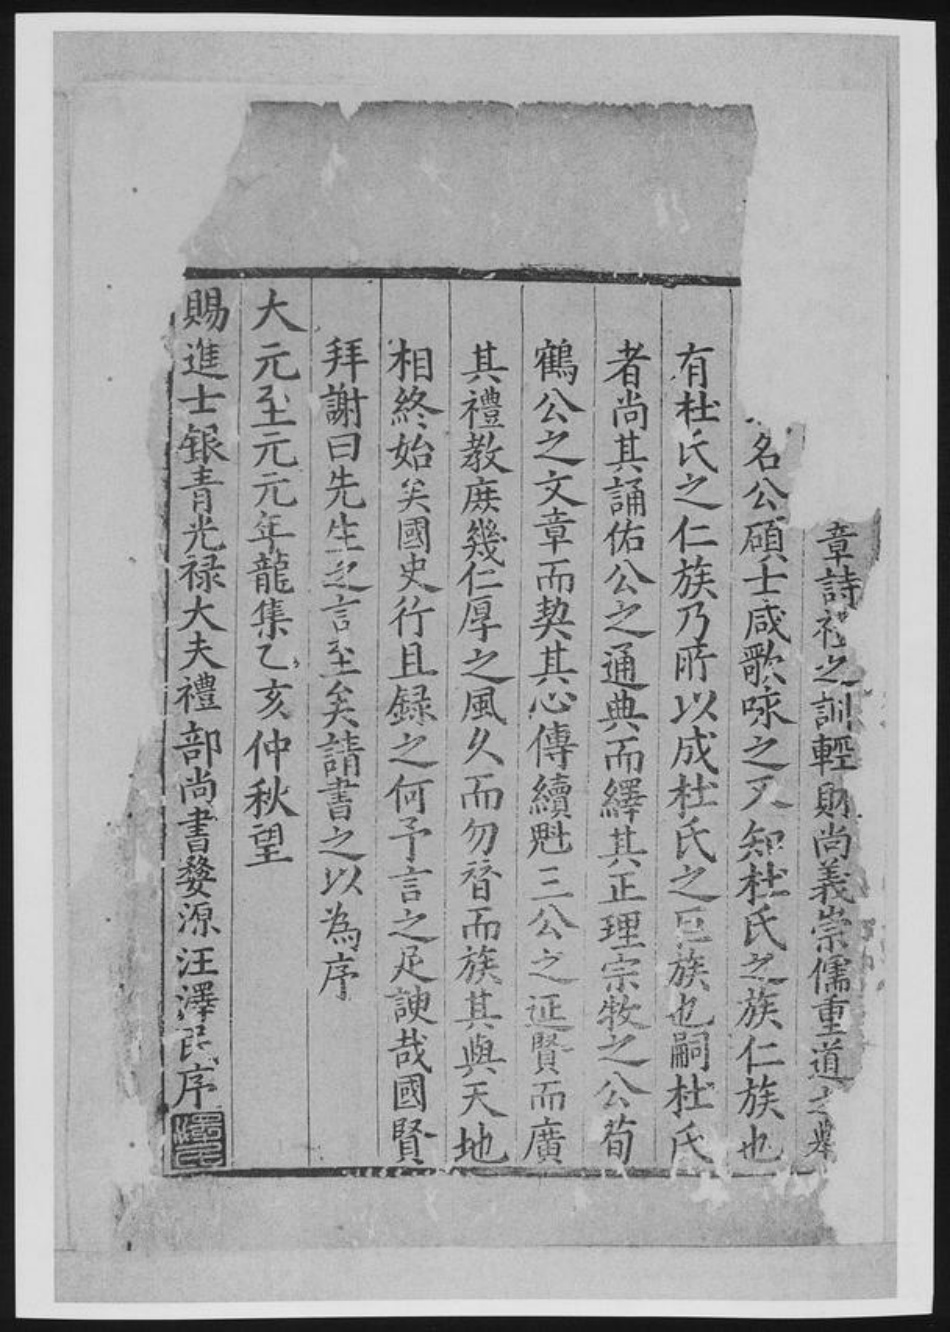 章詩礼之訓輕財尚義崇儒重道之舉
名公碩士咸歌咏之又知杜氏之族仁族也
有杜氏之仁族乃所以成杜氏之巨族也嗣杜氏
者尚其誦佑公之通典而繹其正理宗牧之公荀
鶴公之文章而契其心傳續魁三公之延賢而廣
其禮教庶幾仁厚之風久而勿替而族其與天地
相終始矣國史行且録之何予言之足諛哉國賢
拜謝曰先生之言至矣請書之以為序
大元至元元年龍集乙亥仲秋望
賜進士银青光禄大夫禮部尚書婺源汪澤民序